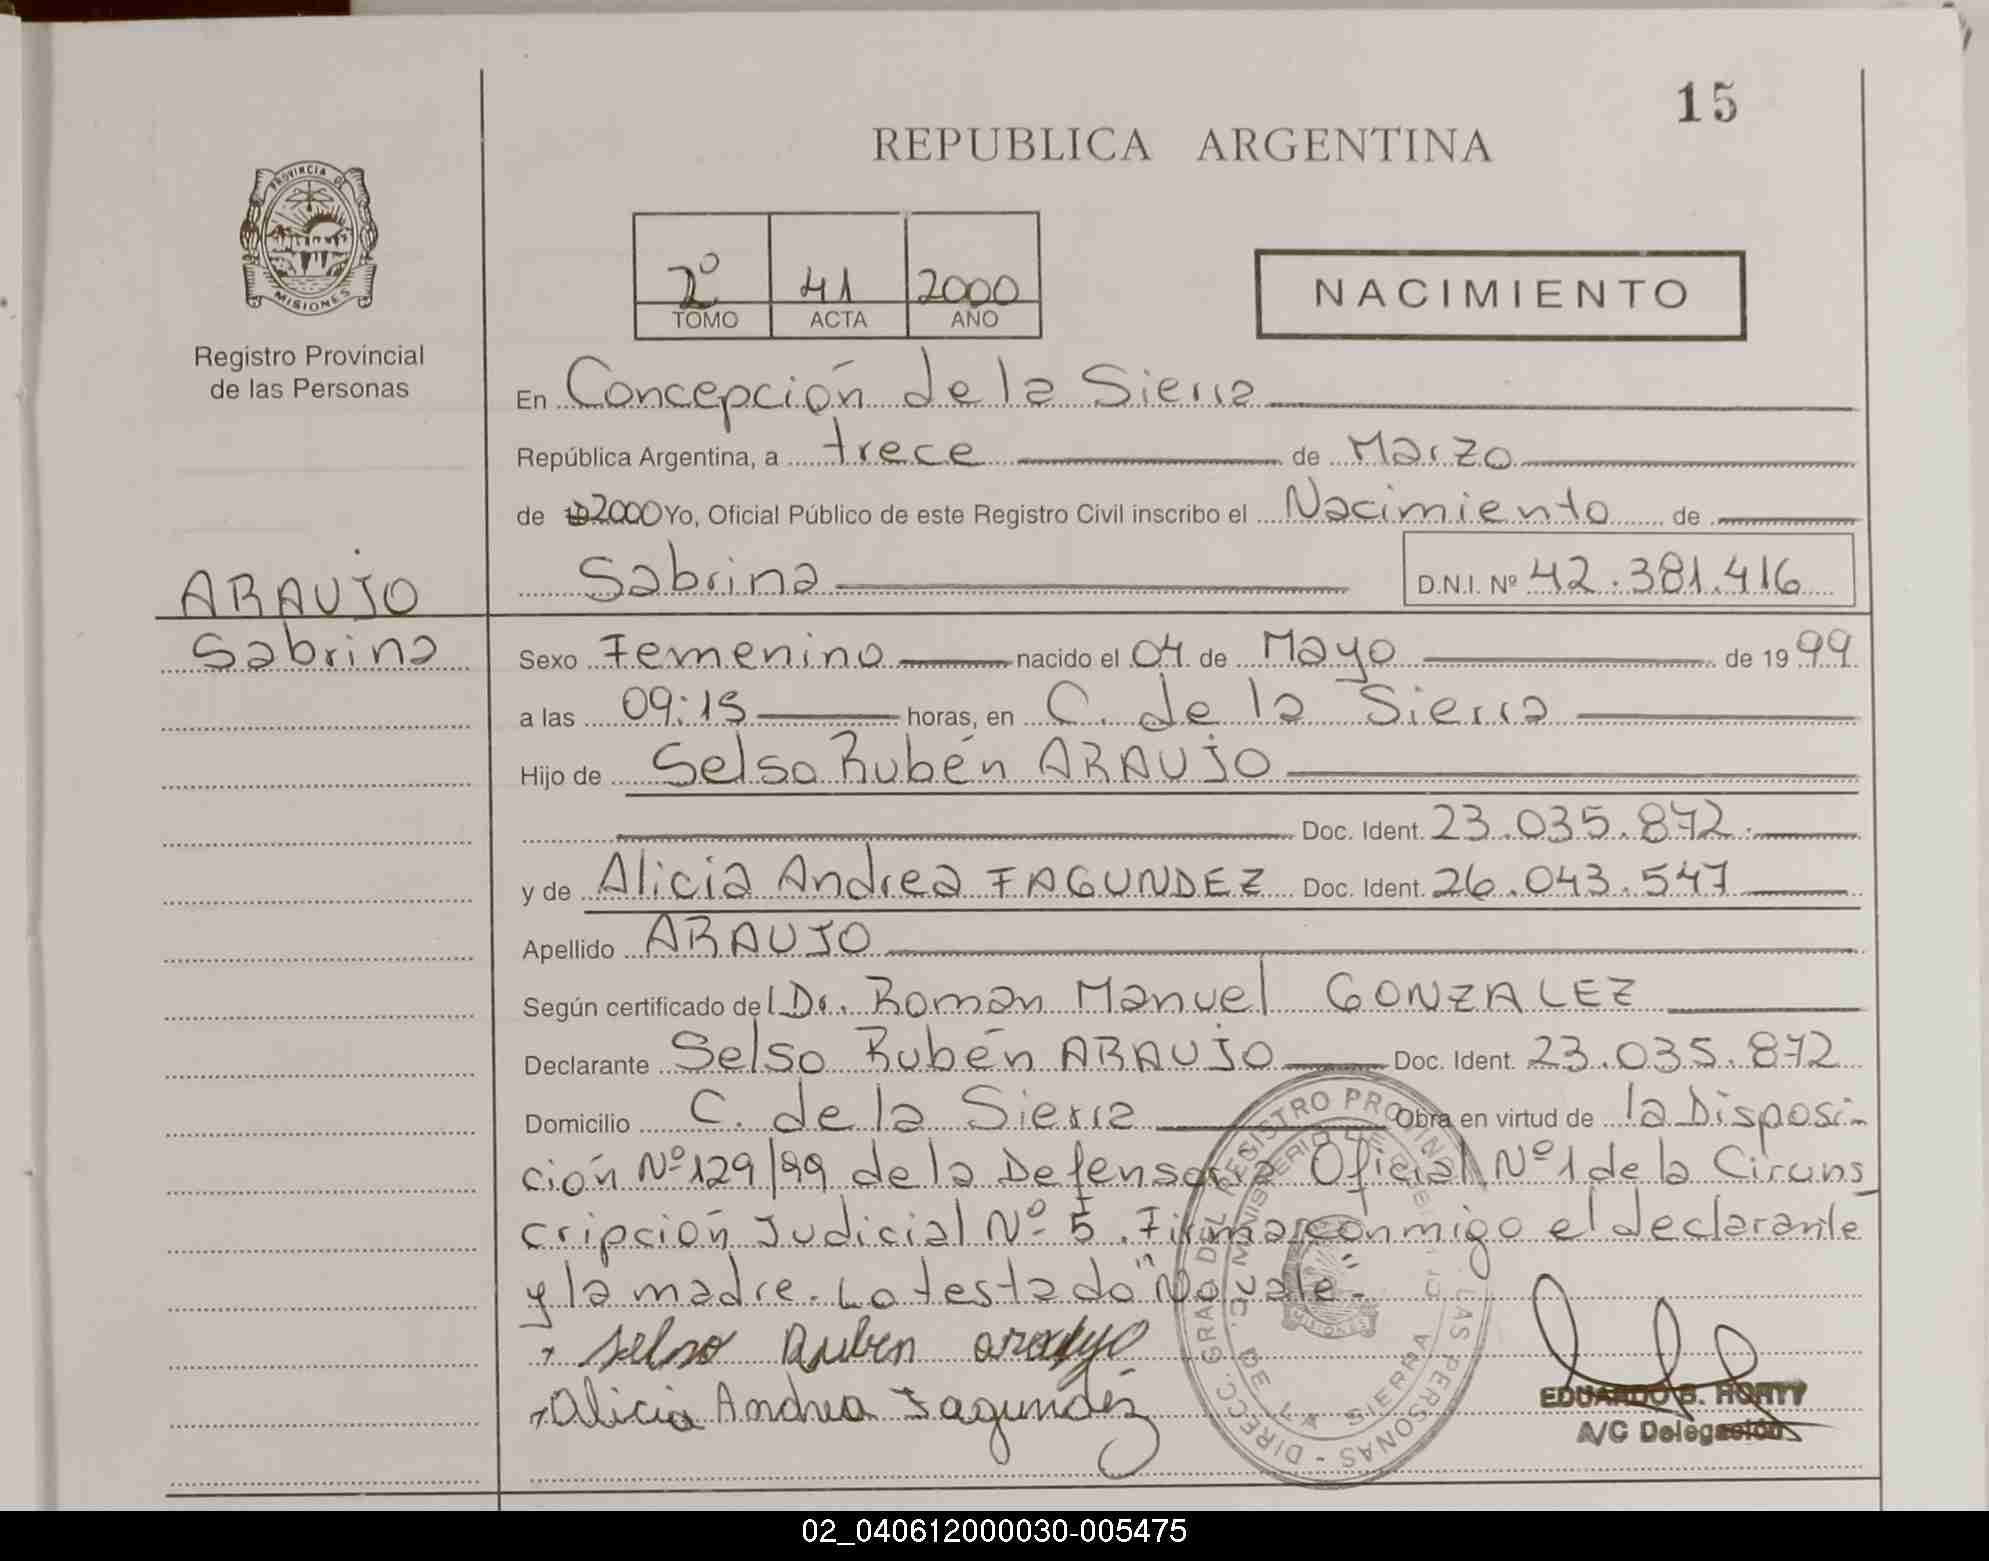 15
REPUBLICA ARGENTINA
PROVINCIA DE
MISIONES
Registro Provincial
de las Personas
2º 41 2000
TOMO ACTA AÑO
NACIMIENTO
En Concepción de la Sierra
República Argentina, a trece de Marzo
de 19 2000 Yo, Oficial Público de este Registro Civil inscribo el Nacimiento de
Sabrina D.N.I. Nº 42.381.416
ARAUJO
Sabrina
Sexo Femenino nacido el 04 de Mayo de 19 99
a las 09:15 horas, en C. de la Sierra
Hijo de Selso Rubén ARAUJO
Doc. Ident. 23.035.872.
y de Alicia Andrea FAGUNDEZ Doc. Ident. 26.043.547
Apellido ARAUJO
Según certificado del Dr. Roman Manuel GONZALEZ
Declarante Selso Rubén ARAUJO Doc. Ident. 23.035.872
Domicilio C. de la Sierra Obra en virtud de la Disposi-
ción Nº 129/99 de la Defensoria Oficial Nº 1 de la Ciruns
cripción Judicial Nº 5. Firma conmigo el declarante
y la madre. Lo testado "No vale".
Selso Ruben araujo
Alicia Andrea Fagundez
DIRECC. GRAL DEL REGISTRO PROVINC. DE LAS PERSONAS
DE LA SIERRA
MISIONES
EDUARDO B. HORTY
A/C Delegación
02_040612000030-005475